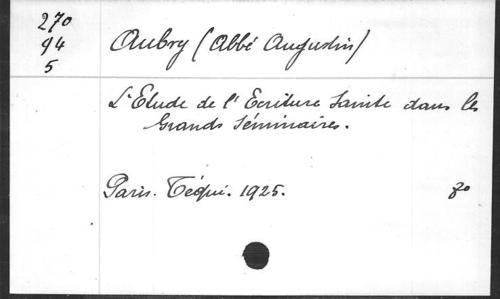 270
94
5
Aubry (Abbé Augustin)
L'Etude de l'Ecriture Sainte dans les
Grands Séminaires.
Paris. Téqui. 1925.